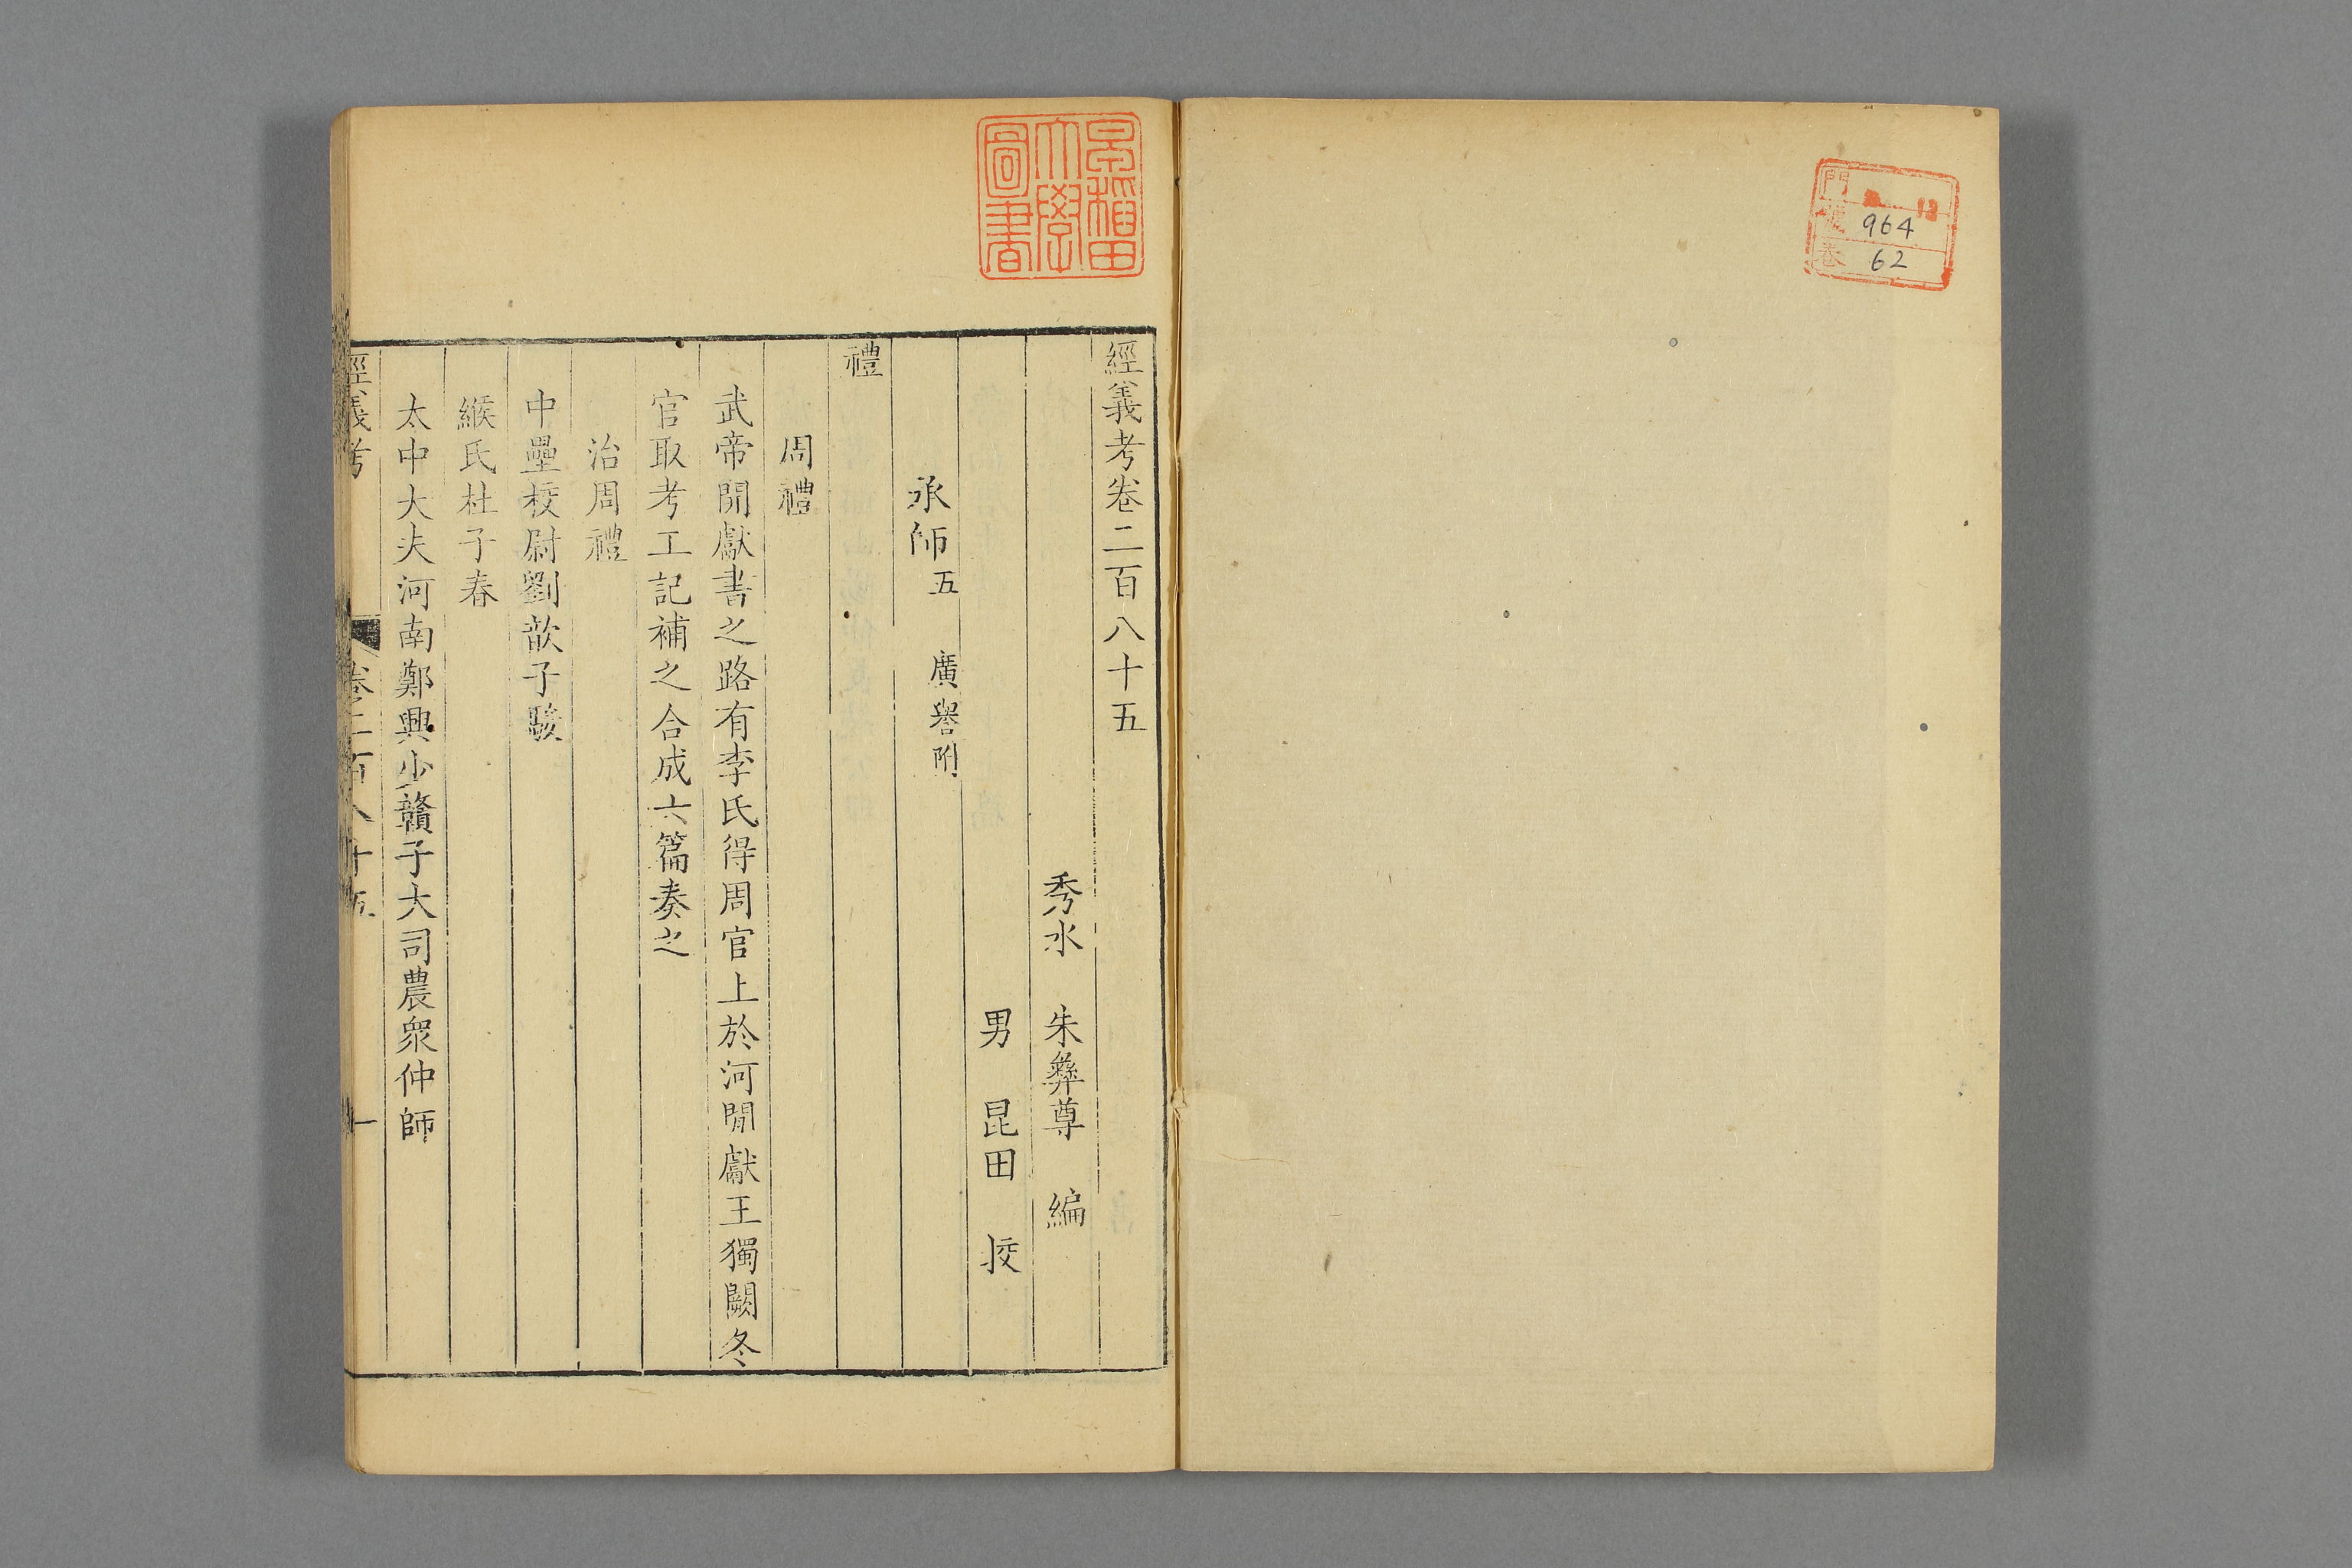 門
964
卷 62
早稻田
大學
圖書
經義考卷二百八十五
秀水 朱彝尊 編
男 昆田 挍
承師五 廣譽附
禮
周禮
武帝開獻書之路有李氏得周官上於河閒獻王獨闕冬
官取考工記補之合成六篇奏之
治周禮
中壘校尉劉歆子駿
緱氏杜子春
太中大夫河南鄭興少贛子大司農眾仲師
經義考 卷二百八十五 一